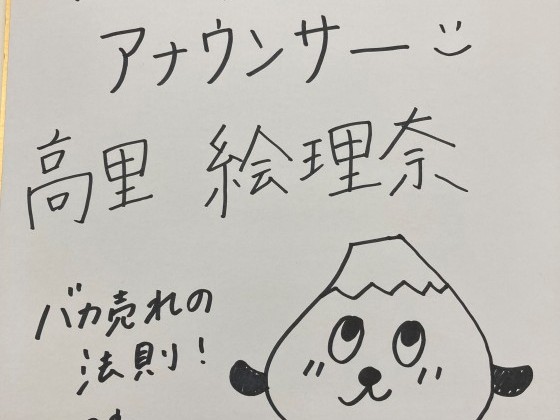 アナウンサー
高里 絵理奈
バカ売れの
法則!